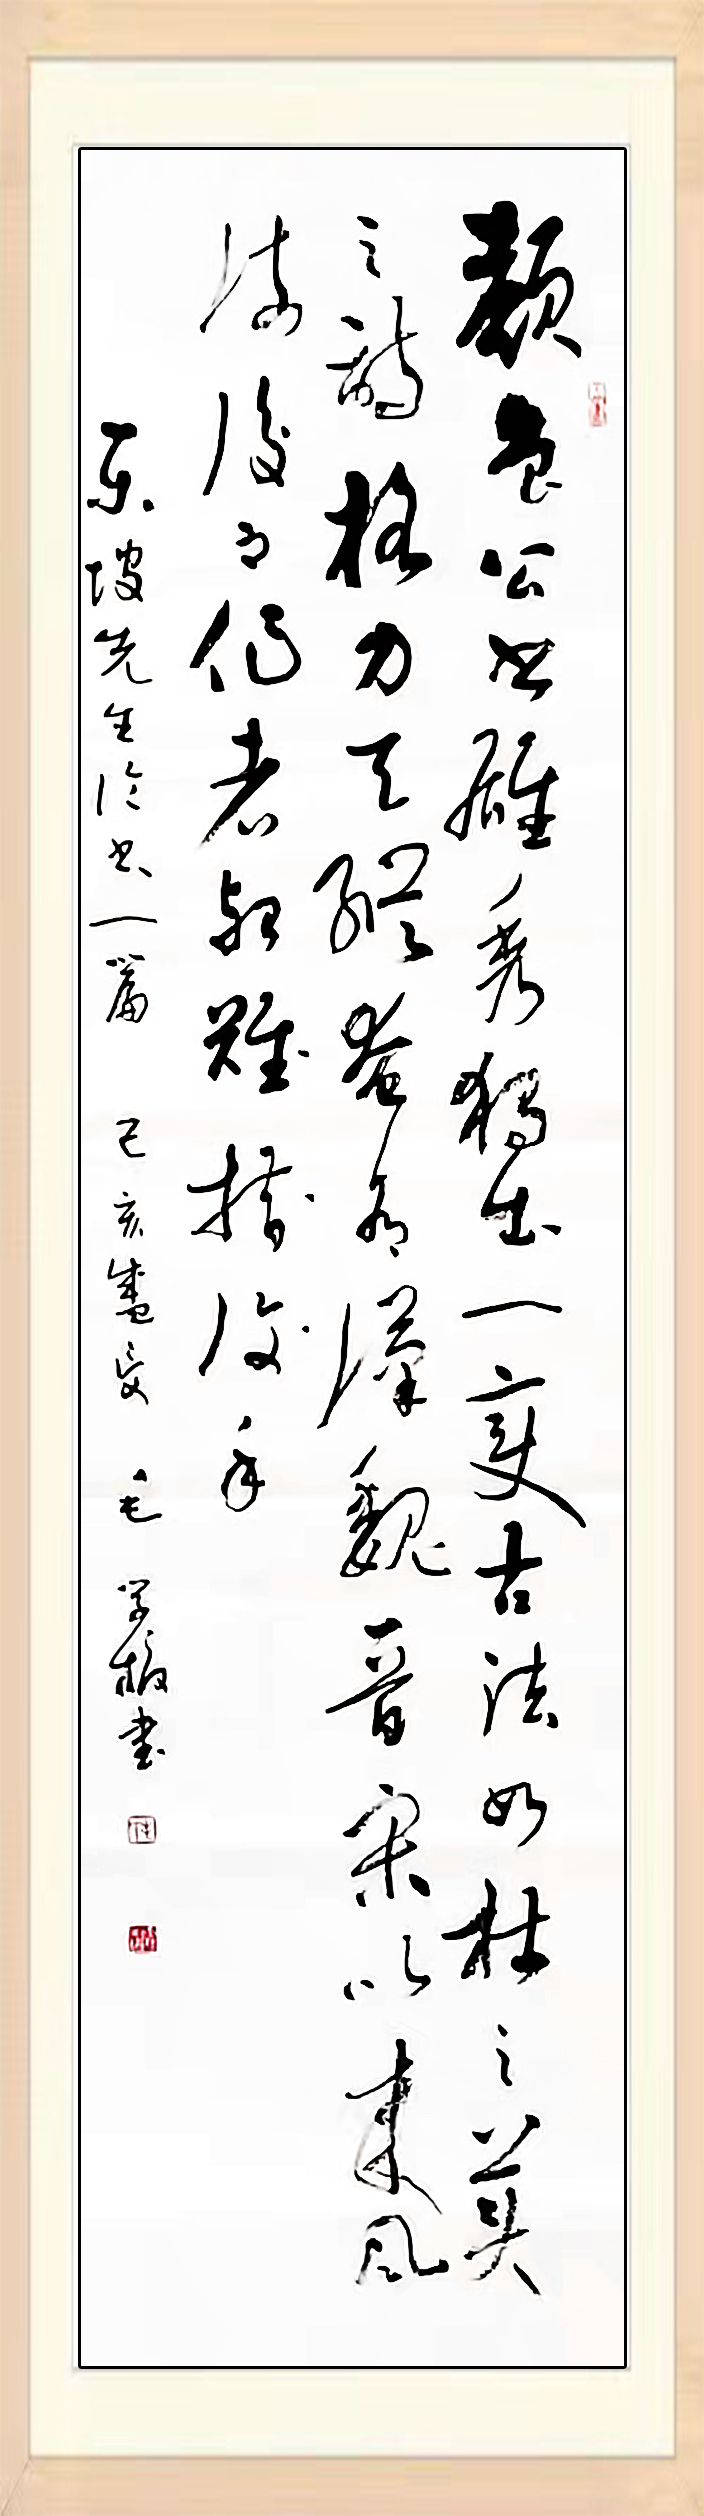 颜鲁公书雄秀独出一变古法如杜之美
之诗格力天纵奄有汉魏晋宋以来风
流后之作者殆难措复手
东坡先生论书一篇 己亥盛夏 毛学书